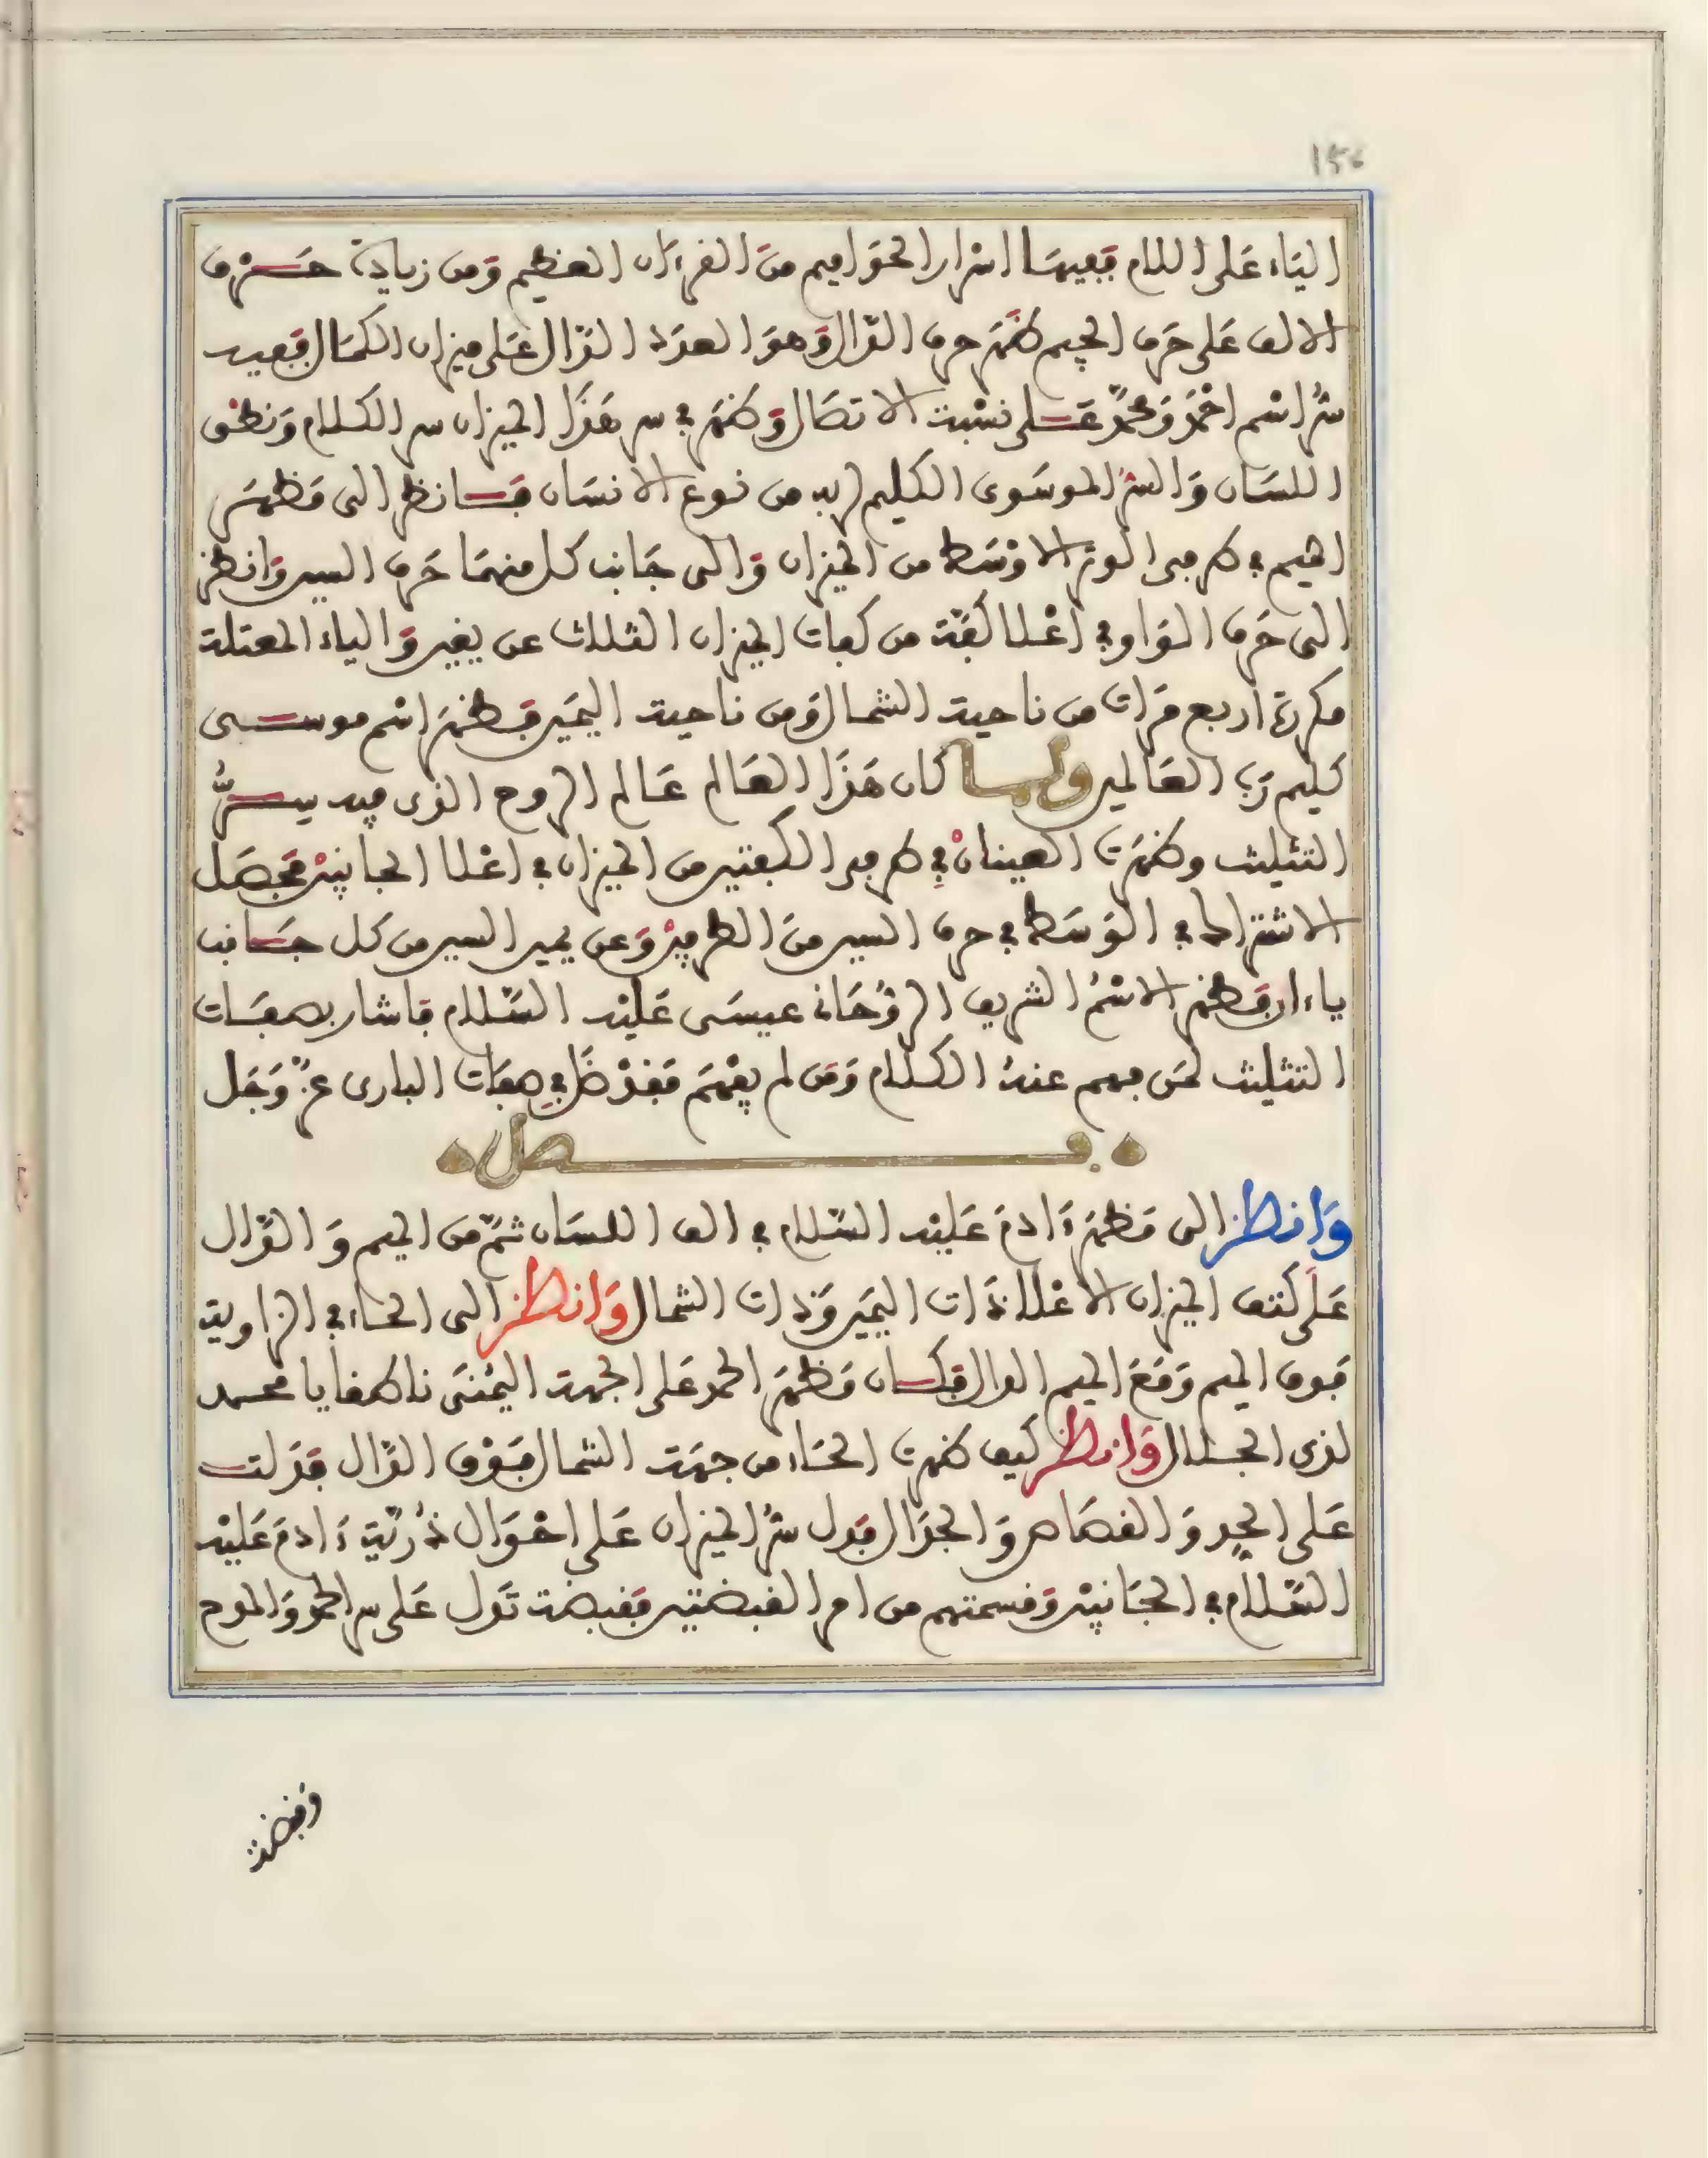 156
الياء على اللام ففيهما اسرار الحواميم من القرءان العظيم ومن زيادة حرف
الالف على حرف الجيم ظهر حرف الدال وهو العدد الدال على ميزان الكمال ففيه
سر اسم احمد ومحمد على نسبة الاتصال وظهر في سر هذا الميزان سر الكلام ونطق
اللسان والسر الموسوى الكليم من نوع الانسان فانظر الى مظهر
الميم في طرفى الوتر الاوسط من الميزان والى جانب كل منهما حرف السين وانظر
الى حرف الواو في اعلا كفة من كفات الميزان الثلث عن يقين والياء المعتلة
مكررة اربع مرات من ناحية الشمال ومن ناحية اليمين فظهر اسم موسى
كليم رب العالمين ولما كان هذا العالم عالم الروح الذى فيه سر
التثليث وظهرت العينان في طرفى الكفتين من الميزان في اعلا الجانبين فحصل
الاشتراك في الوسط في حرف السين من الطرفين وعن يمين السين من كل جانب
ياءان فظهر الاسم الشريف الروحانى عيسى عليه السلام فاشار بصفات
التثليث لمن فهم عنه الكلام ومن لم يفهم فقد ضل في صفات البارى عز وجل
فصل
وانظر الى مظهر ءادم عليه السلام في الف اللسان ثم من الجيم والدال
على كتف الميزان الاعلا ذات اليمين وذات الشمال وانظر الى الحاء في الزاوية
فوق الجيم ومع الجيم الدال فكان مظهر الحمد على الجهة اليمنى ناطقا يا محمد
لذى الجلال وانظر كيف ظهرت الحاء من جهة الشمال فوق الدال فدلت
على الجد والقصاص والجدال فدل سر الميزان على احوال ذرية ءادم عليه
السلام في الجانبين وقسمتهم من امر القبضتين فقبضة تدل على سر الحمد والمدح
وقبضة